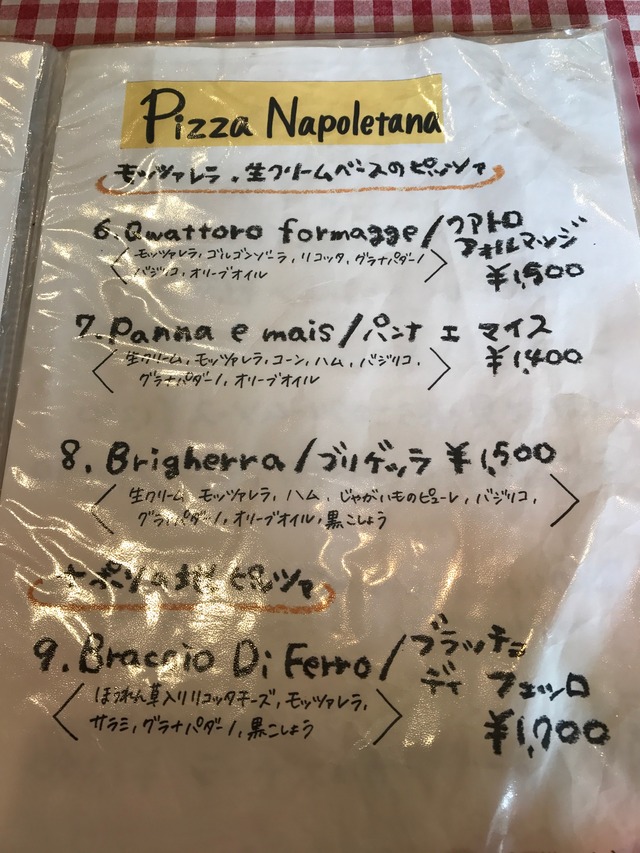 Pizza Napoletana
モッツァレラ、生クリームベースのピッツァ
6. Qwattoro formagge / クアトロ
フォルマッジ
モッツァレラ、ゴルゴンゾーラ、リコッタ、グラナパダーノ
バジリコ、オリーブオイル
¥1,500
7. Panna e mais / パンナ エ マイス
生クリーム、モッツァレラ、コーン、ハム、バジリコ、
グラナパダーノ、オリーブオイル
¥1,400
8. Brigherra / ブリゲッラ ¥1,500
生クリーム モッツァレラ、ハム、じゃがいものピューレ、バジリコ、
グラナパダーノ、オリーブオイル、黒こしょう
ピッツァ
9. Braccio Di Ferro / ブラッチョ
ディ フェッロ
ほうれん草入りリコッタチーズ、モッツァレラ、
サラミ、グラナパダーノ、黒こしょう
¥1,700